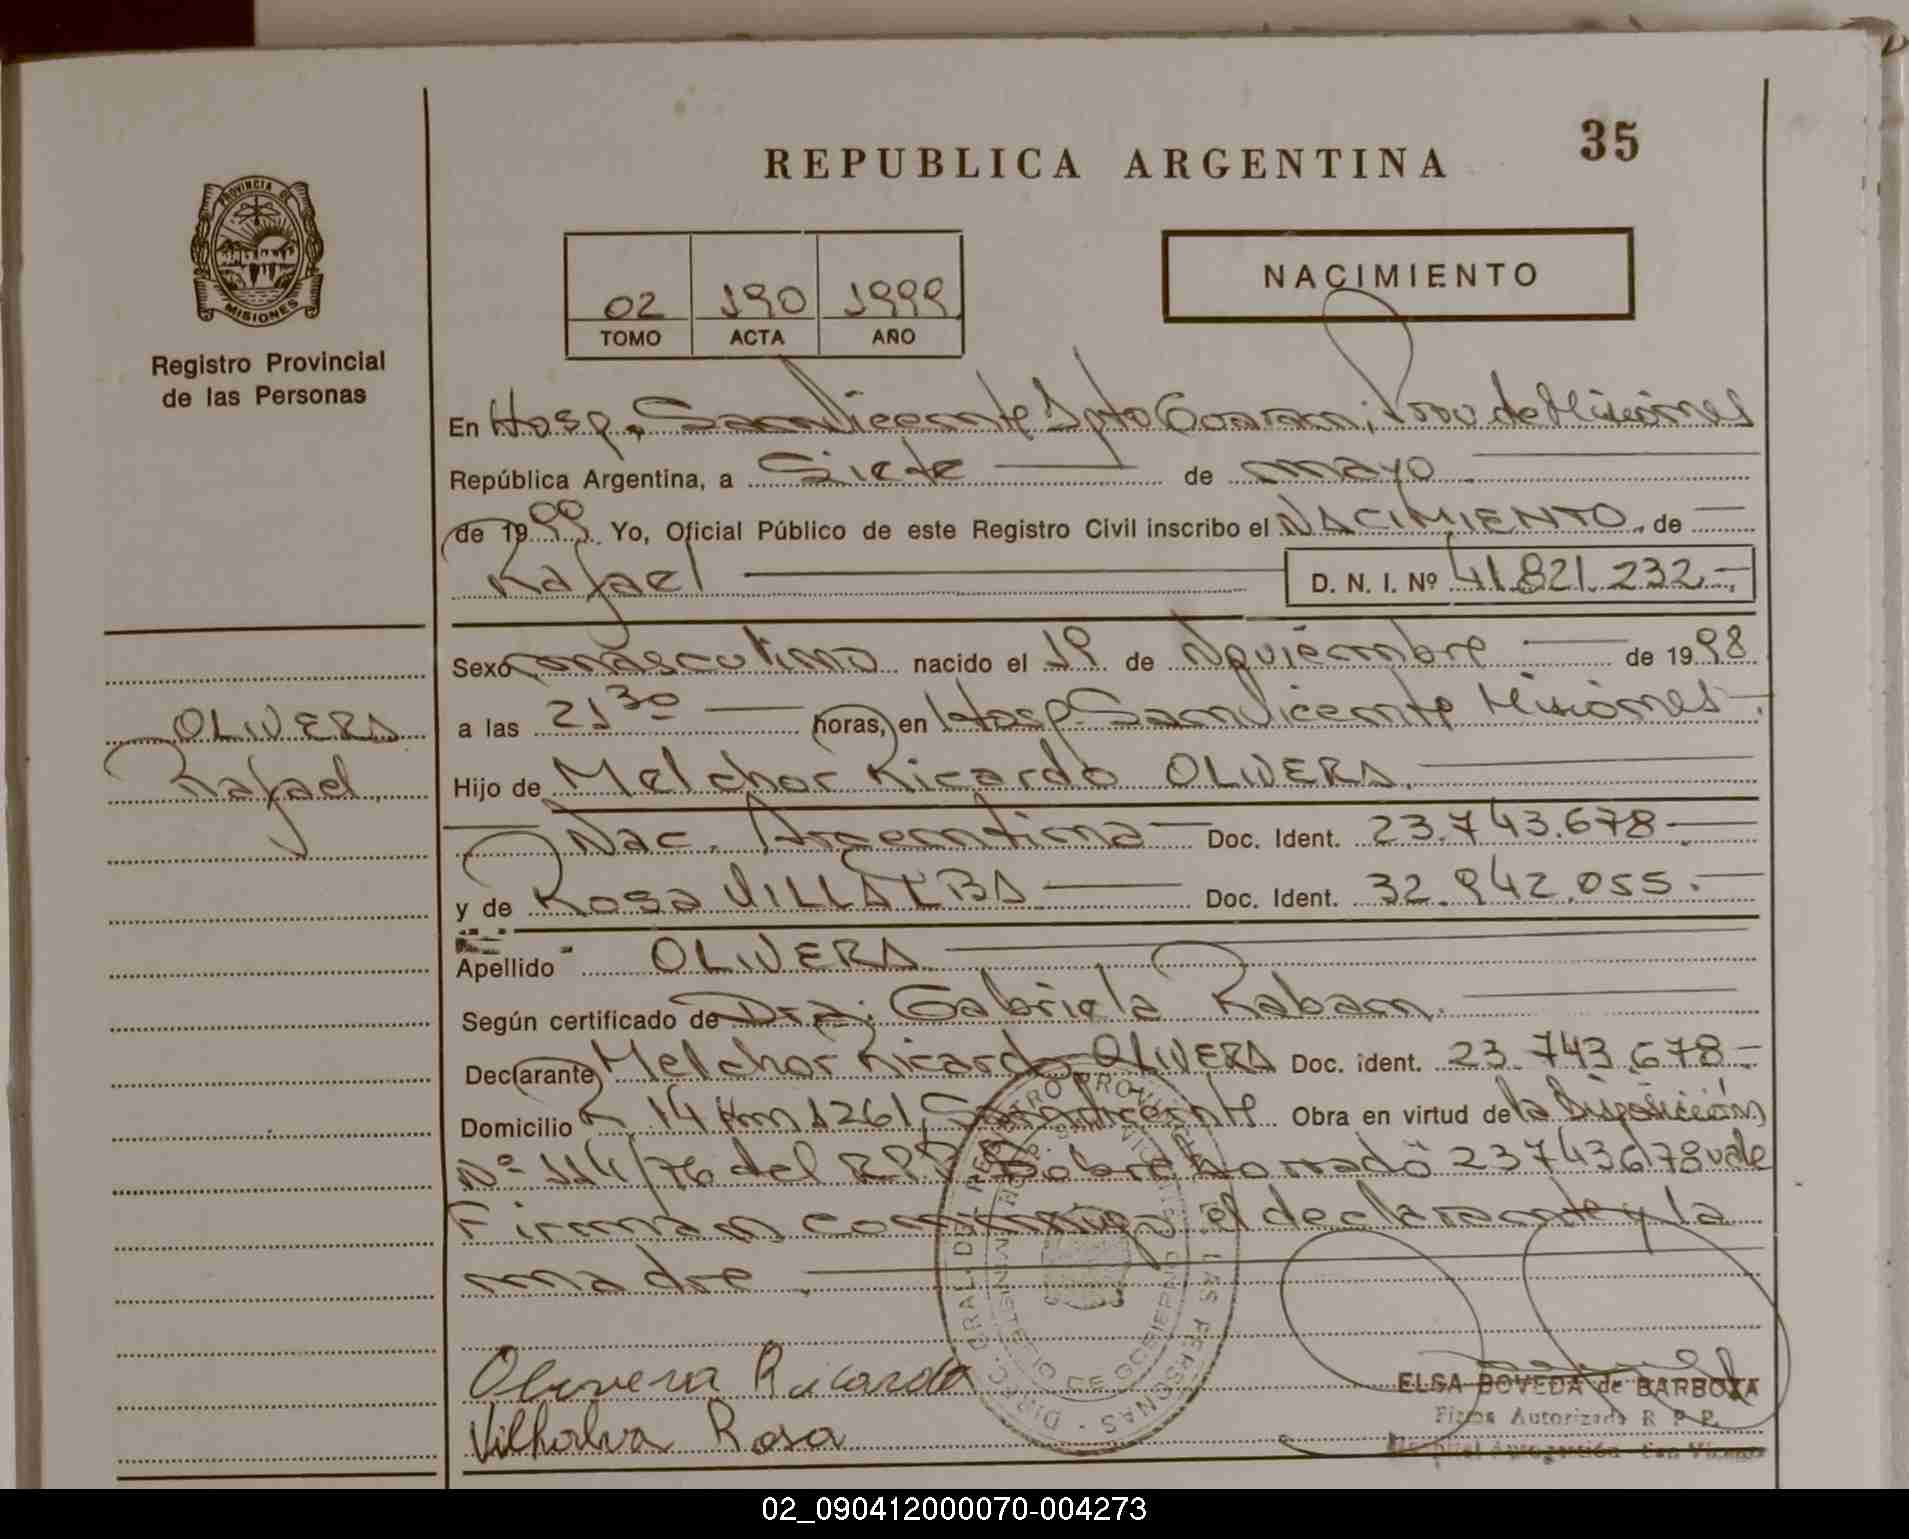 35
REPUBLICA ARGENTINA
PROVINCIA DE
MISIONES
Registro Provincial
de las Personas
02 190 1999
TOMO ACTA AÑO
NACIMIENTO
En Hosp. San Vicente Dpto Guarani, Prov de Misiones
República Argentina, a Siete de mayo
de 1999. Yo, Oficial Público de este Registro Civil inscribo el NACIMIENTO, de
Rafael D. N. I. Nº 41.821.232.-
Sexo masculino nacido el 19 de Noviembre de 1998
a las 21 30 horas, en Hosp. San Vicente Misiones.
OLIVERA
Rafael
Hijo de Melchor Ricardo OLIVERA.
Nac. Argentina Doc. Ident. 23.743.678
y de Rosa VILLALBA Doc. Ident. 32.942.055.
Apellido OLIVERA
Según certificado de Dra. Gabriela Raban.
Declarante Melchor Ricardo OLIVERA Doc. ident. 23.743.678-
Domicilio R. 14 Km 1261, San Vicente. Obra en virtud de la Disposición
Nº 114/76 del RPP Sobre borrado 23743678 vale
Firman conmigo el declarante y la
madre.
Olivera Ricardo
Vilhalva Rosa
ELSA BOVEDA de BARBOZA
Firma Autorizada R. P. P.
Hospital Autogestión San Vicente
DIR. GRAL. DEL REGISTRO PROVINCIAL DE LAS PERSONAS
MINISTERIO DE GOBIERNO
02_090412000070-004273